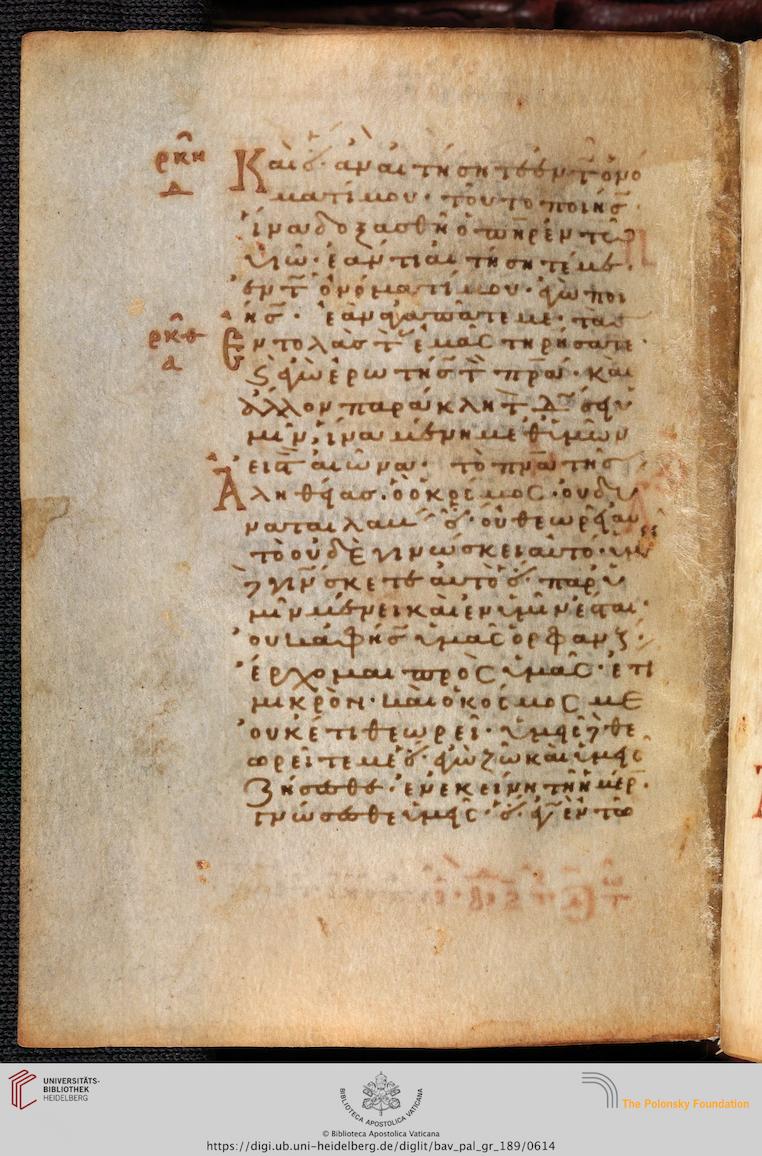 ρκη
Δ
Καὶ ὃ ἂν αἰτήσητε ἐν τῷ ὀνό
ματί μου· τοῦτο ποιήσ
ἵνα δοξασθῇ ὁ πηρ ἐν τῷ
υἱῷ· ἐάν τι αἰτήσητέ με
ἐν τ ὀνόματί μου· ἐγὼ ποι
ήσ· ἐὰν ἀγαπᾶτε με· τὰς
ρκθ
α
ἐντολὰς τ ἐμὰς τηρήσατε·
ϛ ἐγὼ ἐρωτήσ τ πρα· καὶ
ἄλλον παράκλητ δώσει ὑ
μῖν, ἵνα μένη μεθ ὑμῶν
εἰς τ αἰῶνα· τὸ πνα τῆς
Ἀληθείας· ὃ ὁ κόσμος οὐ δύ
ναται λαβ ὅ οὐ θεωρεῖ αυ
τὸ οὐδὲ γινώσκει αὐτό· ὑμ
γινσκετε αὐτὸ ὅ παρ ὑ
μῖν μένει καὶ ἐν ὑμῖν ἔσται·
οὐκ ἀφήσ ὑμᾶς ὀρφαν
ἔρχομαι πρὸς ὑμᾶς· ἔτι
μικρὸν· καὶ ὁ κόσμος με
οὐκέτι θεωρεῖ· ὑμεῖς δὲ θε
ωρεῖτέ με ὅ ἐγὼ ζῶ καὶ ὑμεῖς
ζήσεσθε· ἐν ἐκείνῃ τῇ ἡμέρ
γνώσεσθε ὑμεῖς· ὅ ἐγὼ ἐν τῷ
UNIVERSITÄTS-
BIBLIOTHEK
HEIDELBERG
BIBLIOTECA APOSTOLICA VATICANA
The Polonsky Foundation
© Biblioteca Apostolica Vaticana
https://digi.ub.uni-heidelberg.de/diglit/bav_pal_gr_189/0614